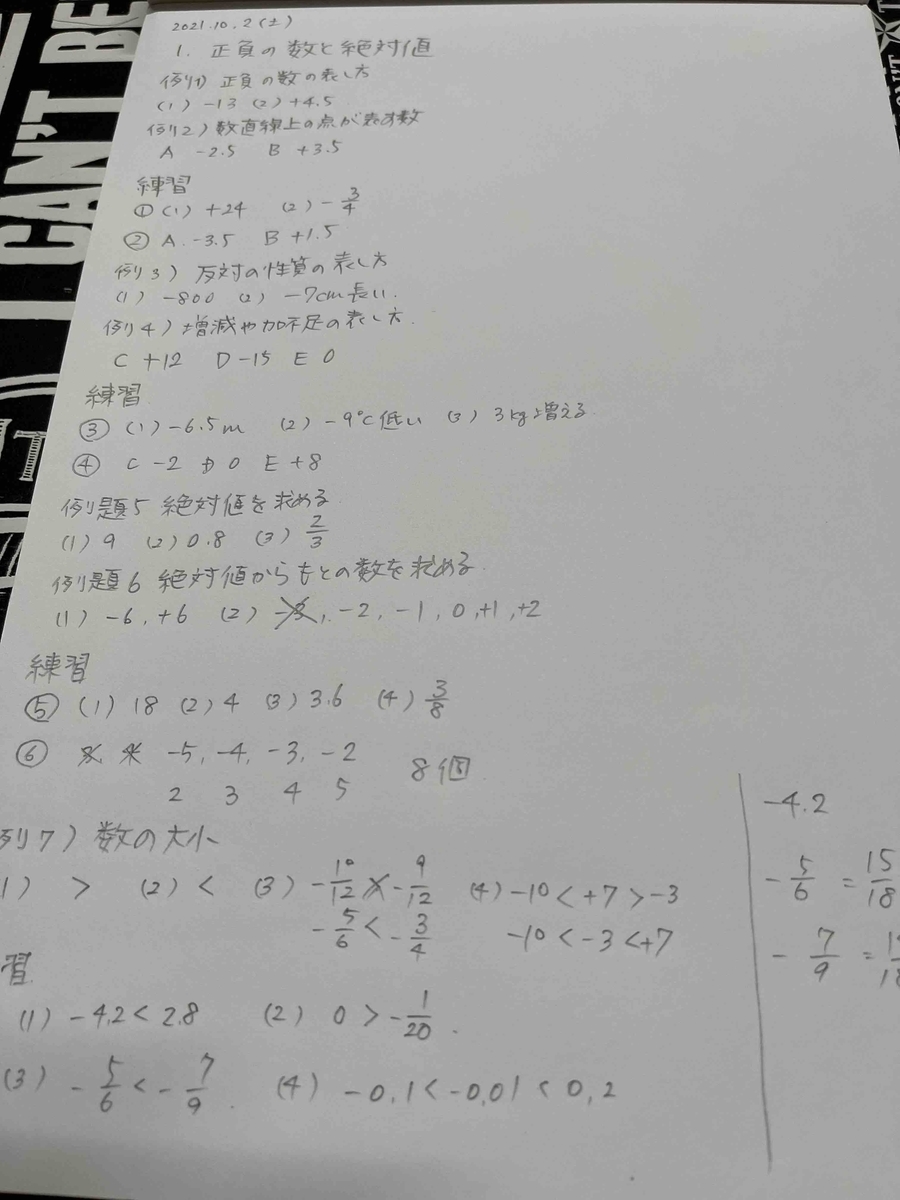 I CAN'T BE
2021.10.2(土)
1. 正負の数と絶対値
例1) 正負の数の表し方
(1) -13 (2) +4.5
例2) 数直線上の点が表す数
A -2.5 B +3.5
練習
① (1) +24 (2) -3/4
② A. -3.5 B +1.5
例3) 反対の性質の表し方
(1) -800 (2) -7cm長い.
例4) 増減や過不足の表し方.
C +12 D -15 E 0
練習
③ (1) -6.5m (2) -9℃低い (3) 3kg増える
④ C -2 D 0 E +8
例題5 絶対値を求める
(1) 9 (2) 0.8 (3) 2/3
例題6 絶対値からもとの数を求める
(1) -6, +6 (2) -2, -1, 0, +1, +2
練習
⑤ (1) 18 (2) 4 (3) 3.6 (4) 3/8
⑥ -5, -4, -3, -2
2 3 4 5 8個
例7) 数の大小
1) > (2) < (3) -10/12 -9/12 (4) -10 < +7 > -3
-5/6 < -3/4 -10 < -3 < +7
習
(1) -4.2 < 2.8 (2) 0 > -1/20.
(3) -5/6 < -7/9. (4) -0.1 < -0.01 < 0.2
-4.2
-5/6 = 15/18
-7/9 =